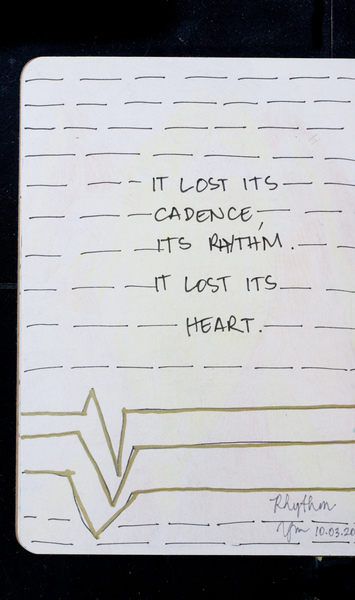 IT LOST ITS
CADENCE,
ITS RHYTHM.
IT LOST ITS
HEART.
Rhythm
10.03.20